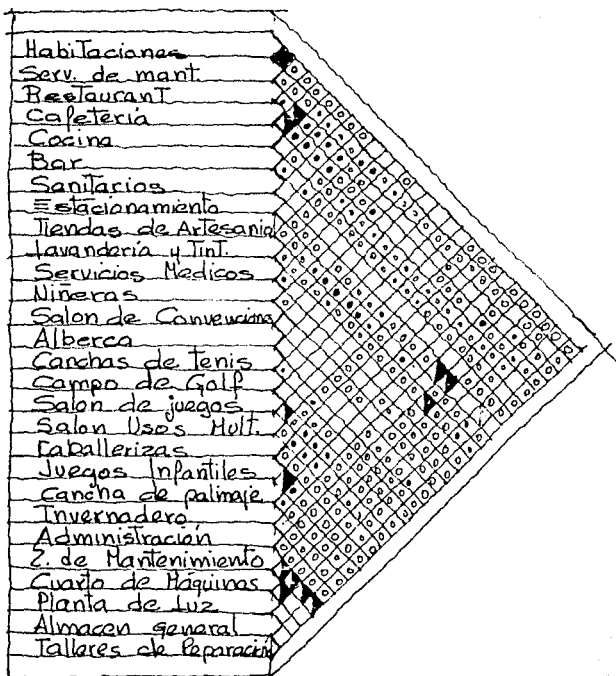 Habitaciones
Serv. de mant.
Restaurant
Cafeteria
Cocina
Bar
Sanitarios
Estacionamiento
Tiendas de Artesania
Lavanderia y Tint.
Servicios Medicos
Niñeras
Salon de Convenciones
Alberca
Canchas de tenis
Campo de Golf
Salon de juegos
Salon Usos Mult.
Caballerizas
Juegos Infantiles
Cancha de palinaje
Invernadero
Administración
Z. de Mantenimiento
Cuarto de Máquinas
Planta de Luz
Almacen general
Talleres de Reparación